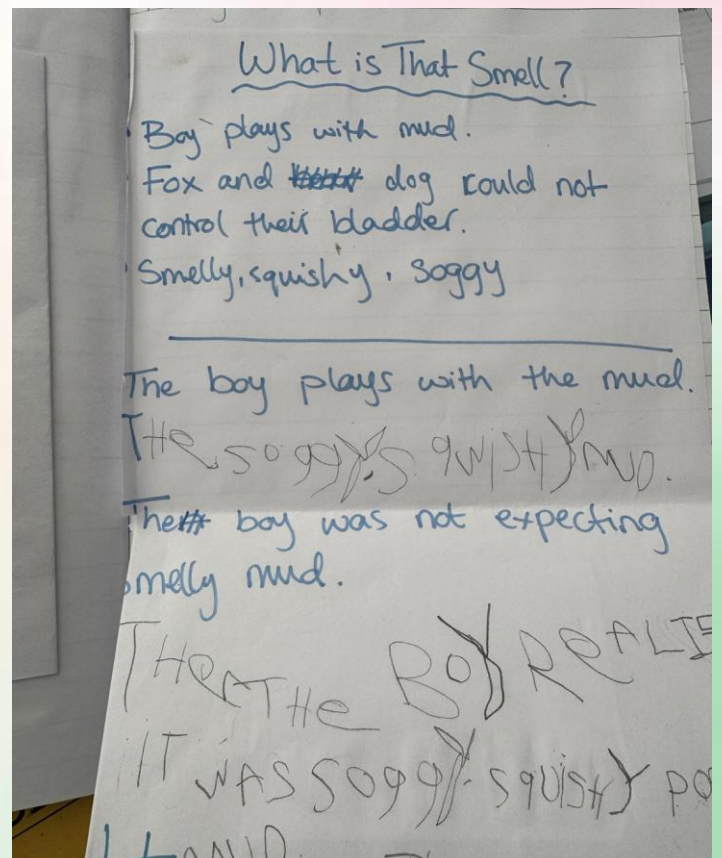 What is That Smell?
Boy plays with mud.
Fox and dog could not
control their bladder.
Smelly, squishy, soggy
The boy plays with the mud.
THe soggy. SquisHY MUD.
The boy was not expecting
smelly mud.
THe THe BOY ReALIS
IT WAS SOggY. SquisHY PO
MUD.